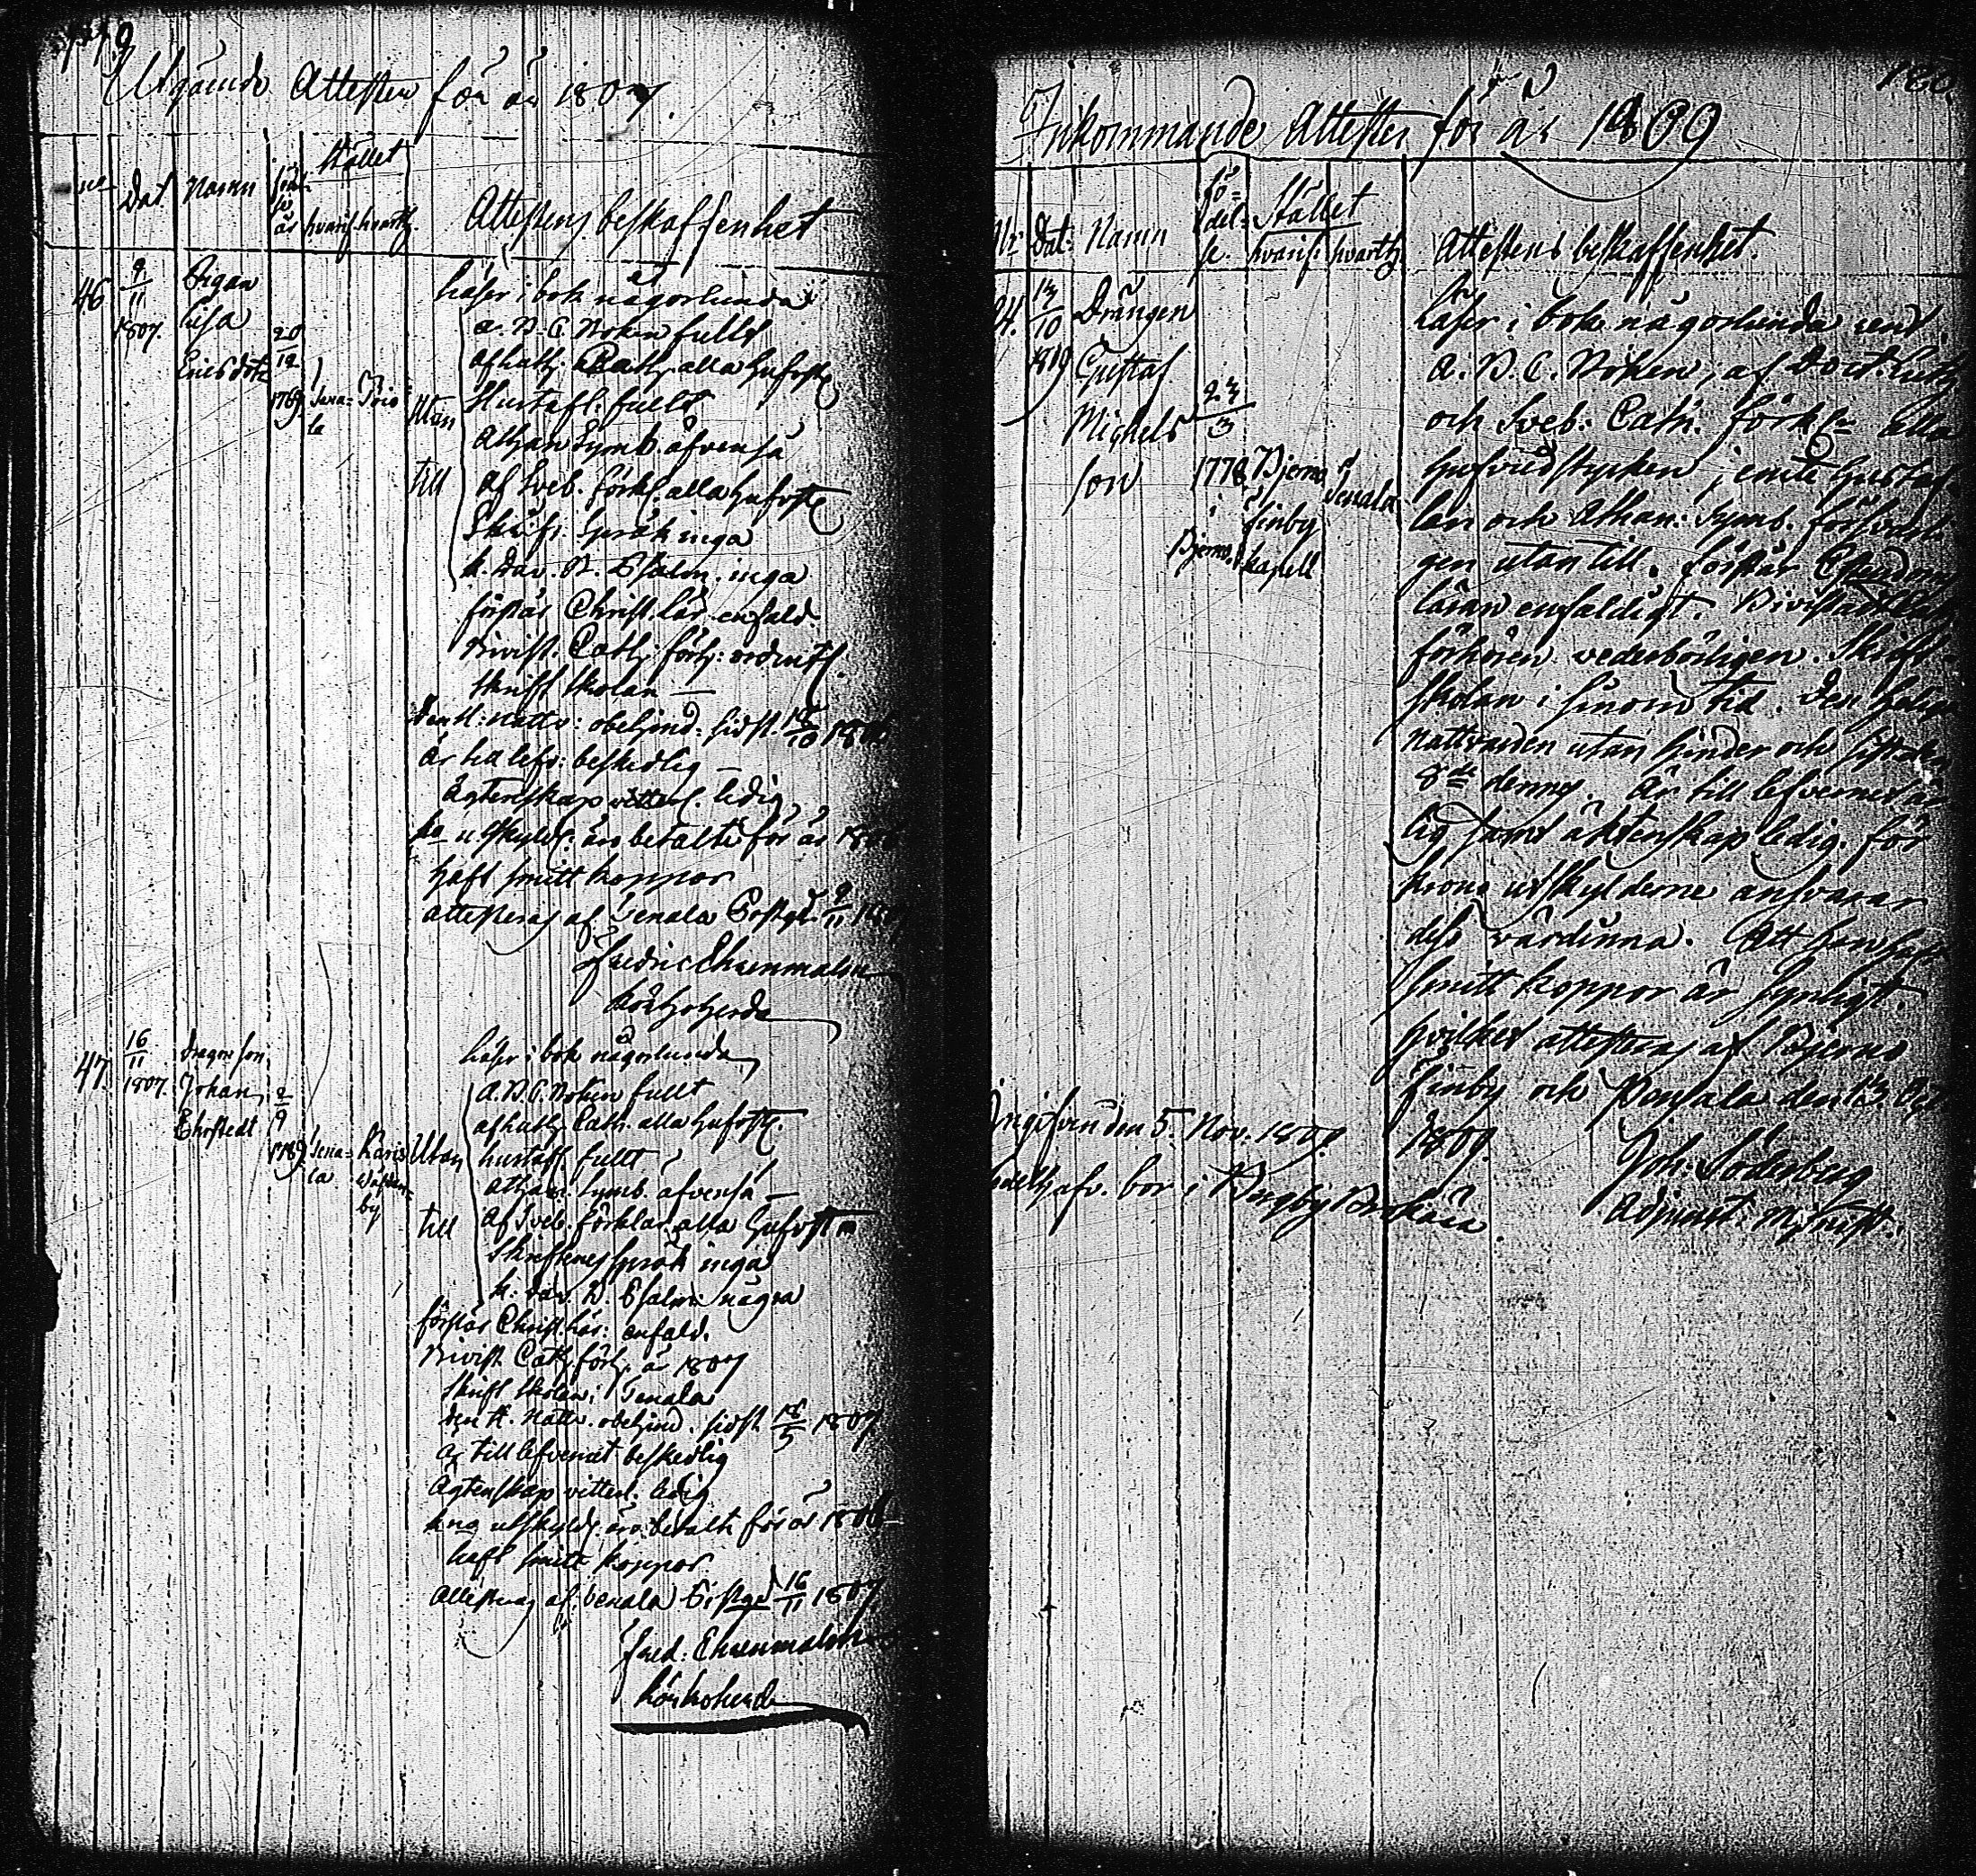 Utgående Attester för år 1807.
No Dat Namn år Stället hvarif. hvarth. Attestens beskaffenhet
46 9/11 1807. Pigan Lisa Ericsdotr 20/12 1769 Tena=la
Läser i bok någorlunda
A. B. C. Boken fullt
af Luth. Cath. alla hufvst.
Utan
Hustafl. fullt
Athan Symb. äfvenså
till
af Sveb. förkl. alla hufvst.
Skrift. språk inga
k. Dav. B. Psalm. inga
förstår Christ. lär. enfald.
Bivist. Cath. förh: ordentl.
Skrift skolan —
den H: Nattv: obehind: sidst. 1806
är till lefv: beskedlig
Ägtenskap vitterl. ledig
utskyld. äro betalte för år 1806
haft smitt koppor
attesteras af Tenala Prästgd. 9/11 1807
Fredric Ehrenmalm
körkoherde
47. 16/11 1807. Dragon son Johan 2/9 1789 Tena=la Karis
by
Läser i bok någorlunda
A. B. C. Boken fullt
af Luth. Cath. alla hufvst.
Utan
hustafl. fullt
Athan. Symb. äfvenså
till
Af Sveb. förklar. alla hufvst.
Skriftenes språk inga
k. Dav. B. Psalm några
förstår Christ. lär: enfald.
Bivist. Cath. förh. år 1807
Skrift skolan i Tenala
den H. Nattv. obehind. sidst 1807
är till lefvernet beskedlig
Ägtenskap vitterl. ledig
utskyld. äro betalt för år 1806
haft smitt koppor
Attesteras af Tenala Prästgd 16/11 1807
Fred: Ehrenmalm
körkoherde
Inkommande Attester för år 1809
Nr Dat: Namn fö=del=se. Stället hvarif. hvarth. Attestens beskaffenhet.
13/10 1809 Drängen Gustaf Michels son 23/3 1778 i Bjerno Bjerno Finby kapell Tenala
Läser i bok någorlunda rent
A. B. C. Boken, af Doct. Luth.
och Sveb: Cath. förkl. alla
hufvudstycken, jemte Hustaf-
lan och Athan: Symb. försvarli-
gen utantill. förstår Christendoms
läran enfaldigt. Bivistat Läse
förhören vederbörligen. Skrift
skolan i sinom tid. Den Helga
Nattvarden utan hinder och sist den
8de dennes. Är till lefvernet är
lig samt äktenskap ledig. för
krono utskylderne ansvarar
dess värdinna. Att han haft
Smitt koppor är synligt.
hvilket attesteras af Bjerno
Finby och den 13 Oct
1809.
Joh: Söderberg
Adjunct. Minist.
Ingifven den 5. Nov. 1809.
bor i